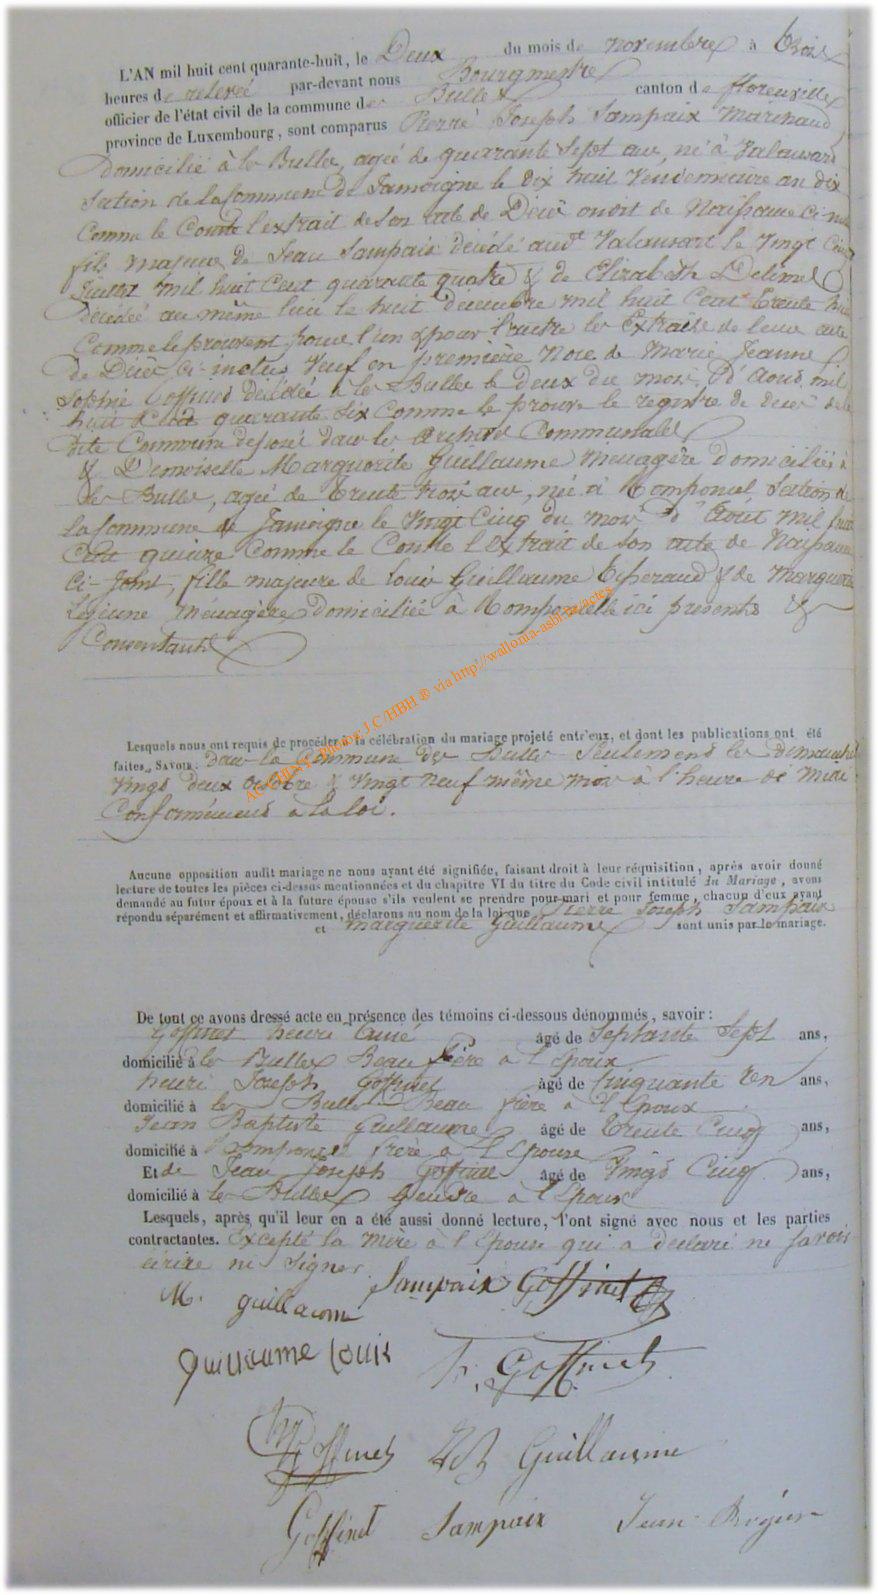 L'AN mil huit cent quarante-huit, le Deux du mois de novembre à trois
heures de relevé par-devant nous Bourgmestre
officier de l'état civil de la commune des Bulles canton de florenville
province de Luxembourg, sont comparus Pierre Joseph Sampaix Marchand
domicilié à les Bulles, agée de quarante Sept ans, né à Valansart
Section de la Commune de Jamoigne le dix huit Vendemiaire an dix
Comme le Conste l'extrait de son acte de Naissance Ci-
fils majeur de Jean Sampaix décédé Valansart le Vingt Cinq
mil huit Cent quarante quatre & de Elizabeth
décédée au même lieu le huit decembre mil huit Cent trente
Comme le prouvent pour l'un & pour l'autre les Extraits de leur acte
de Décès ci-inclus, Veuf en première Noce de Marie Jeanne
Sophie Goffinet décédée à les Bulles le deux du mois d'Aout mil
huit Cent quarante Six Comme le prouve le registre de décès de la
dite Commune déposé dans les Archives Communales
& Demoiselle Marguerite Guillaume Menagère domiciliée à
les Bulles, agée de trente trois ans, née à Romponcel, Section de
la Commune de Jamoigne le Vingt Cinq du mois d'Aout mil huit
Cent quinze Comme le Conste l'Extrait de son acte de Naissance
Ci-Joint, fille majeure de Louis Guillaume & de Marguerite
Lejeune Ménagère domiciliée à Romponcelle ici presents &
Consentants
Lesquels nous ont requis de procéder à la célébration du mariage projeté entr'eux, et dont les publications ont été
faites, SAVOIR: dans la Commune des Bulles Seulement les dimanches
Vingt deux octobre & Vingt Neuf même mois à l'heure de midi
Conformément à la loi.
Aucune opposition audit mariage ne nous ayant été signifiée, faisant droit à leur réquisition, après avoir donné
lecture de toutes les pièces ci-dessus mentionnées et du chapitre VI du titre du Code civil intitulé du Mariage, avons
demandé au futur époux et à la future épouse s'ils veulent se prendre pour mari et pour femme, chacun d'eux ayant
répondu séparément et affirmativement, déclarons au nom de la loi que Pierre Joseph Sampaix
et Marguerite Guillaume sont unis par le mariage.
De tout ce avons dressé acte en présence des témoins ci-dessous dénommés, savoir:
Goffinet henri âgé de Septante Sept ans,
domicilié à les Bulles Beau frère à l'Epoux
henri Joseph Goffinet âgé de Cinquante ans,
domicilié à les Bulles Beau frère à l'Epoux
Jean Baptiste Guillaume âgé de trente Cinq ans,
domicilié à Romponcel frère à l'Epouse
Et de Jean Joseph Goffinet âgé de Vingt Cinq ans,
domicilié à les Bulles Gendre à l'Epoux
Lesquels, après qu'il leur en a été aussi donné lecture, l'ont signé avec nous et les parties
contractantes. Excepté la mère à l'Epouse qui a déclaré ne savoir
écrire ni signer
M. guillaume Sampaix Goffinet
guillaume Louis h. Goffinet
Goffinet JB Guillaume
Goffinet Sampaix Jean
AC CHINY - Photos J C/HBH ® via http://wallonia-asbl.eu/actes